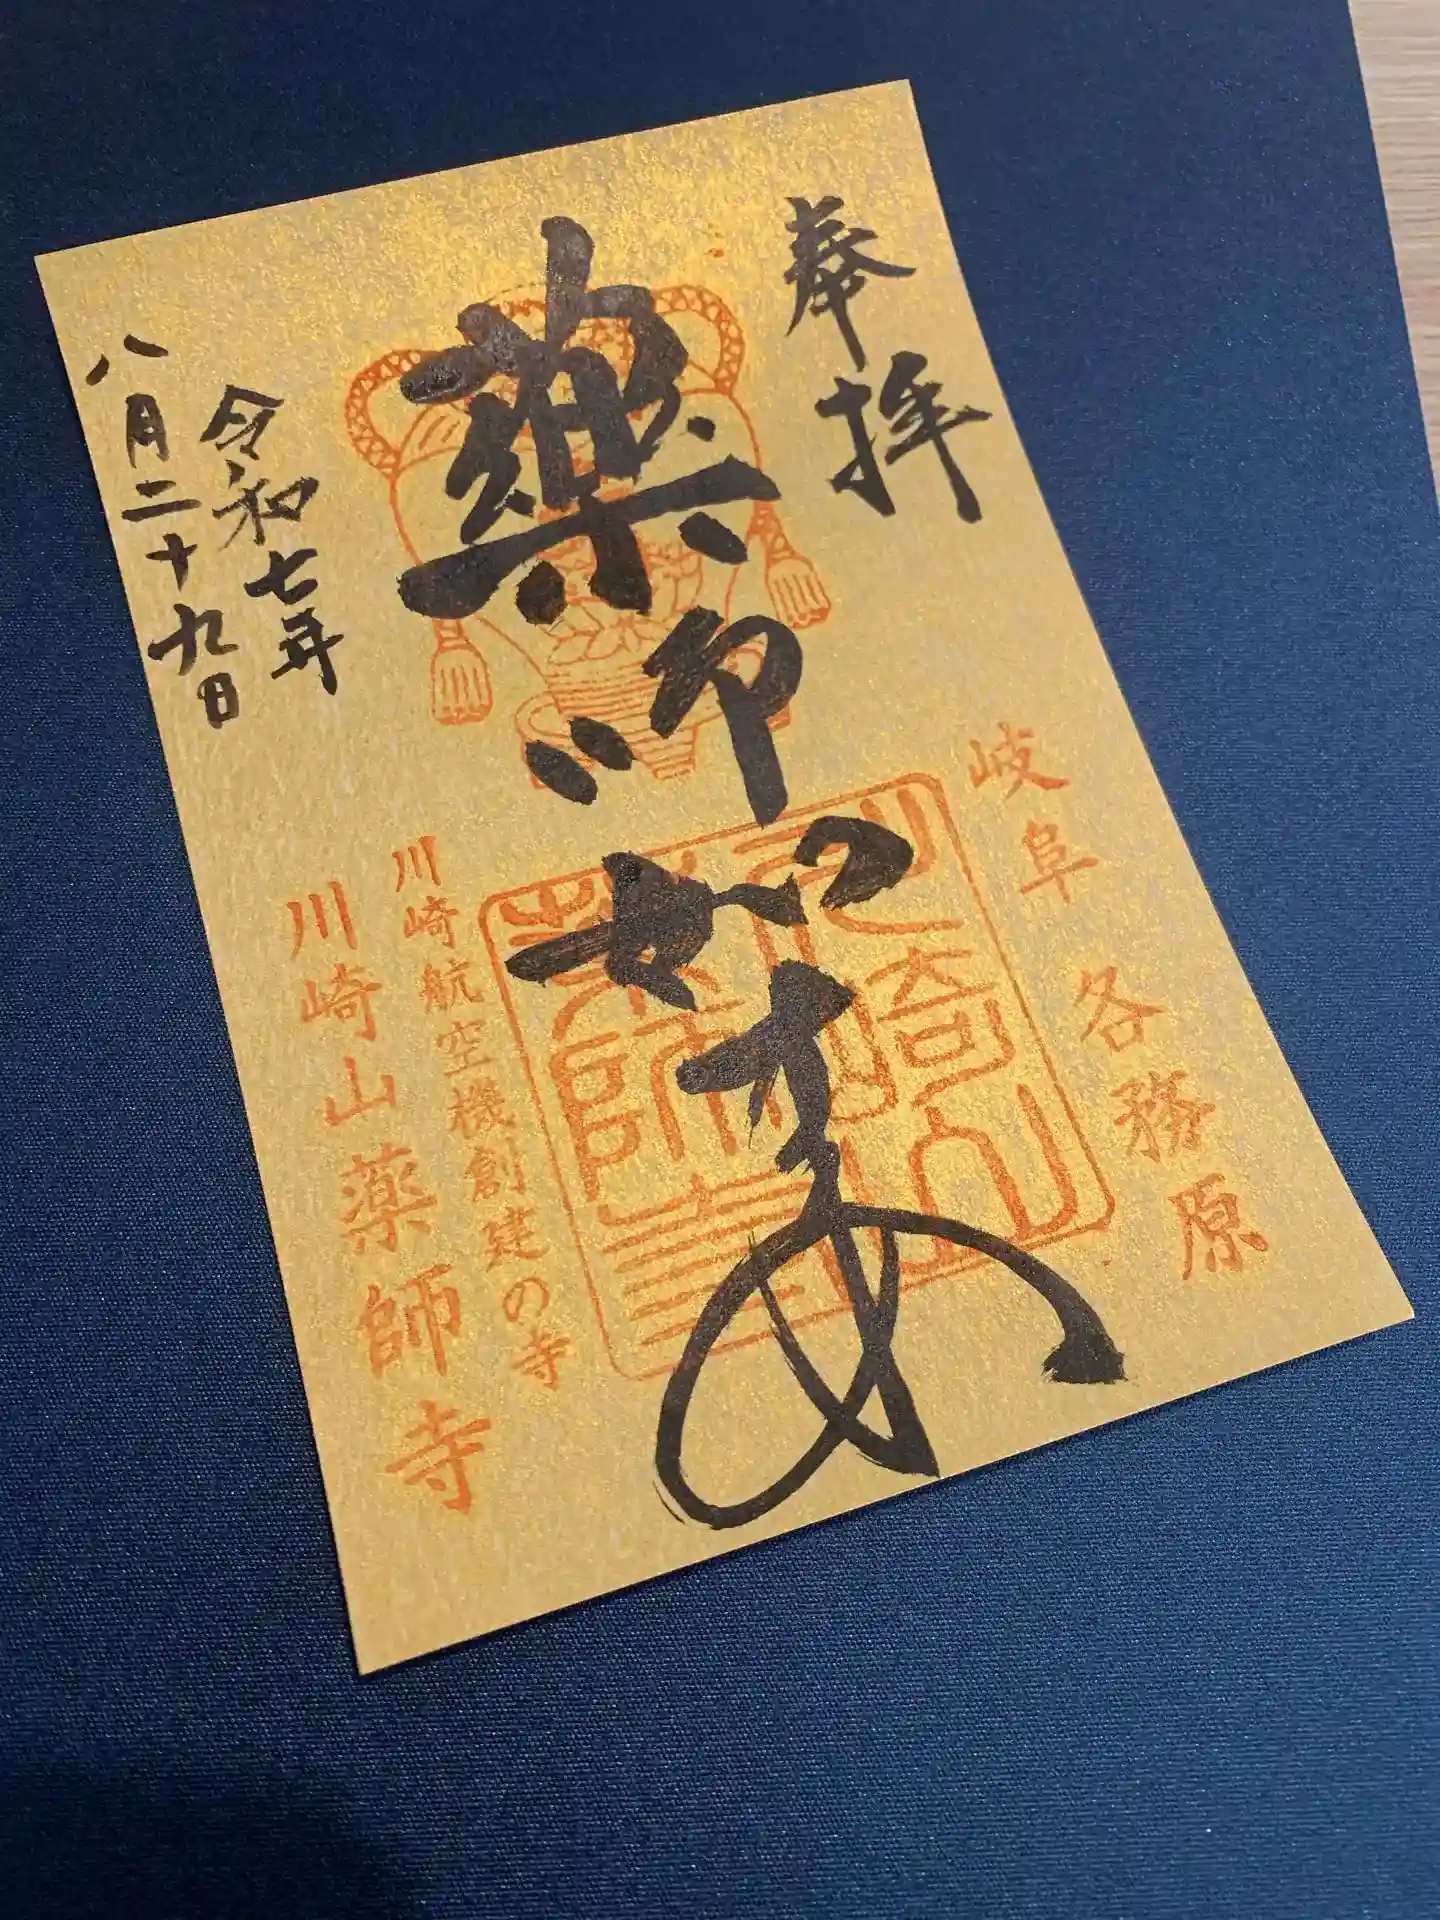 奉拝
岐阜 各務原
薬師如来
川崎山薬師寺
令和七年
八月二十九日
川崎航空機創建の寺
川崎山薬師寺